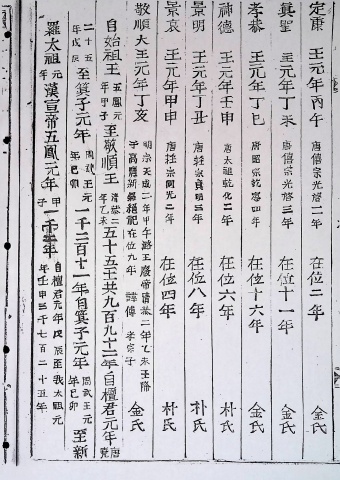 定康 王元年丙午 唐僖宗光啓二年 在位二年 金氏
眞聖 王元年丁未 唐僖宗光啓三年 在位十一年 金氏
孝恭 王元年丁巳 唐昭宗乾寧四年 在位十六年 金氏
神德 王元年壬申 唐太祖乾化二年 在位六年 朴氏
景明 王元年丁丑 貞明三年 在位八年 朴氏
景哀 王元年甲申 唐莊宗同光二年 在位四年 朴氏
敬順大王元年丁亥 明宗天成二年 廢帝淸泰二年乙未王降于高麗新羅 在位九年 諱傅 孝宗子 金氏
自始祖王 五鳳元年甲子 至敬順王 淸泰二年乙未 五十五王共九百九十二年自檀君元年 唐堯
二十五年戊辰 至箕子元年 周武王元年己卯 一千二百十一年自箕子元年 周武王元年己卯 至新
羅太祖元年 漢宣帝五鳳元年 甲子 自檀君元年戊辰至我太祖元年壬申三千七百二十五年